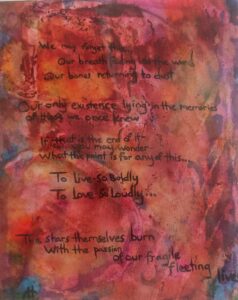 We may forget this...
Our breath fading into the wind
Our bones returning to dust
Our only existence lying in the memories
of those we once knew
If that is the end of it
you may wonder
What the point is for any of this...
To Live so Boldly
To Love so Loudly...
The stars themselves burn
With the passion
of our fragile
fleeting
lives